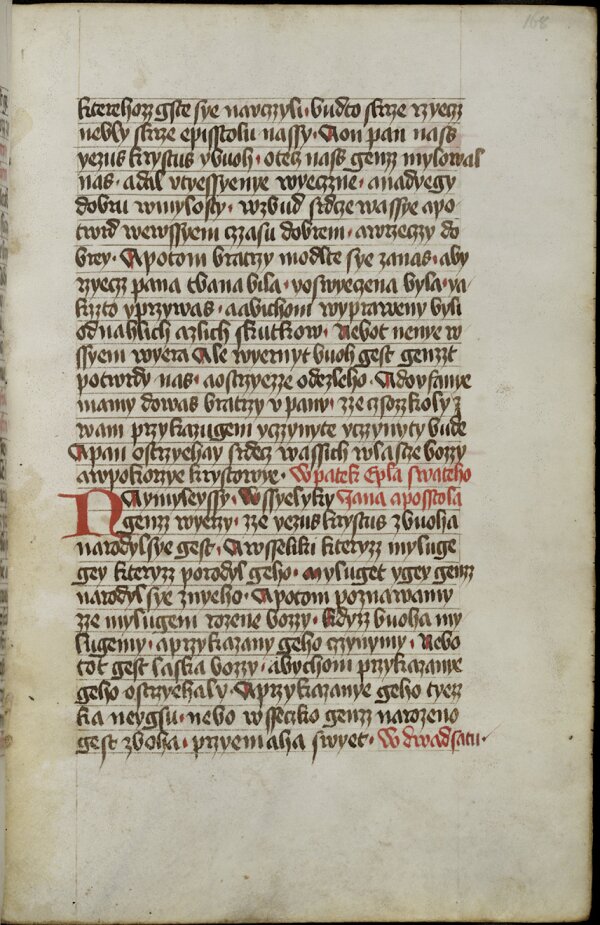 168
kterehozz gste sye nauczyli · budto skrze rzyecz
nebly skrze episstolu nassy · Aon pan nass
yezus krystus ybuoh · otecz nass genzz mylowal
nas · adal vtyessyenye wyeczne · anadyegy
dobru wmylosty · wzbud srdcze wassye apo
twrd wewssyem czasu dobrem · awrzeczy do
brey · Apotom bratrzy modlte sye zanas · aby
rzyecz pana tbana bila · yoswyecena byla · ya
kzto yprzywas · aabichom wypraweny byli
odnahlich azlich skutkow · Nebot nenye w
ssyem wyera Ale wyernyt buoh gest genzzt
potwrdy nas · aostrzyezze odezleho · Adoyfanye
mamy dowas bratrzy vpany · zze czsozzkoly z
wam przykazugem yczynyte yczynyty bude
Apan ostrzyehay srdcz wassich wlasze bozzy
awpokorzye krystowye · Wpatek Epla swateho
NAymyleyssy · Wssyelyky Jana aposstola
genzz wyerzy · zze yezus krystus zbuoha
narodylsye gest · Awsseliki kteryzz myluge
gey kteryzz porodyl geho · Myluget ygey genzz
narodyl sye znyeho · Apotom poznawamy
zze mylugem rozene bozzy · Kdyzz buoha my
lugemy · aprzykazany geho czynymy · Nebo
tot gest laska bozzy · abychom przykazanye
geho ostrzyehaly · Aprzykazanye geho tyezz
ka neygsu · nebo wsseczko genzz narozeno
gest zboha · przyemaha swyet · Wdwadsatu ·